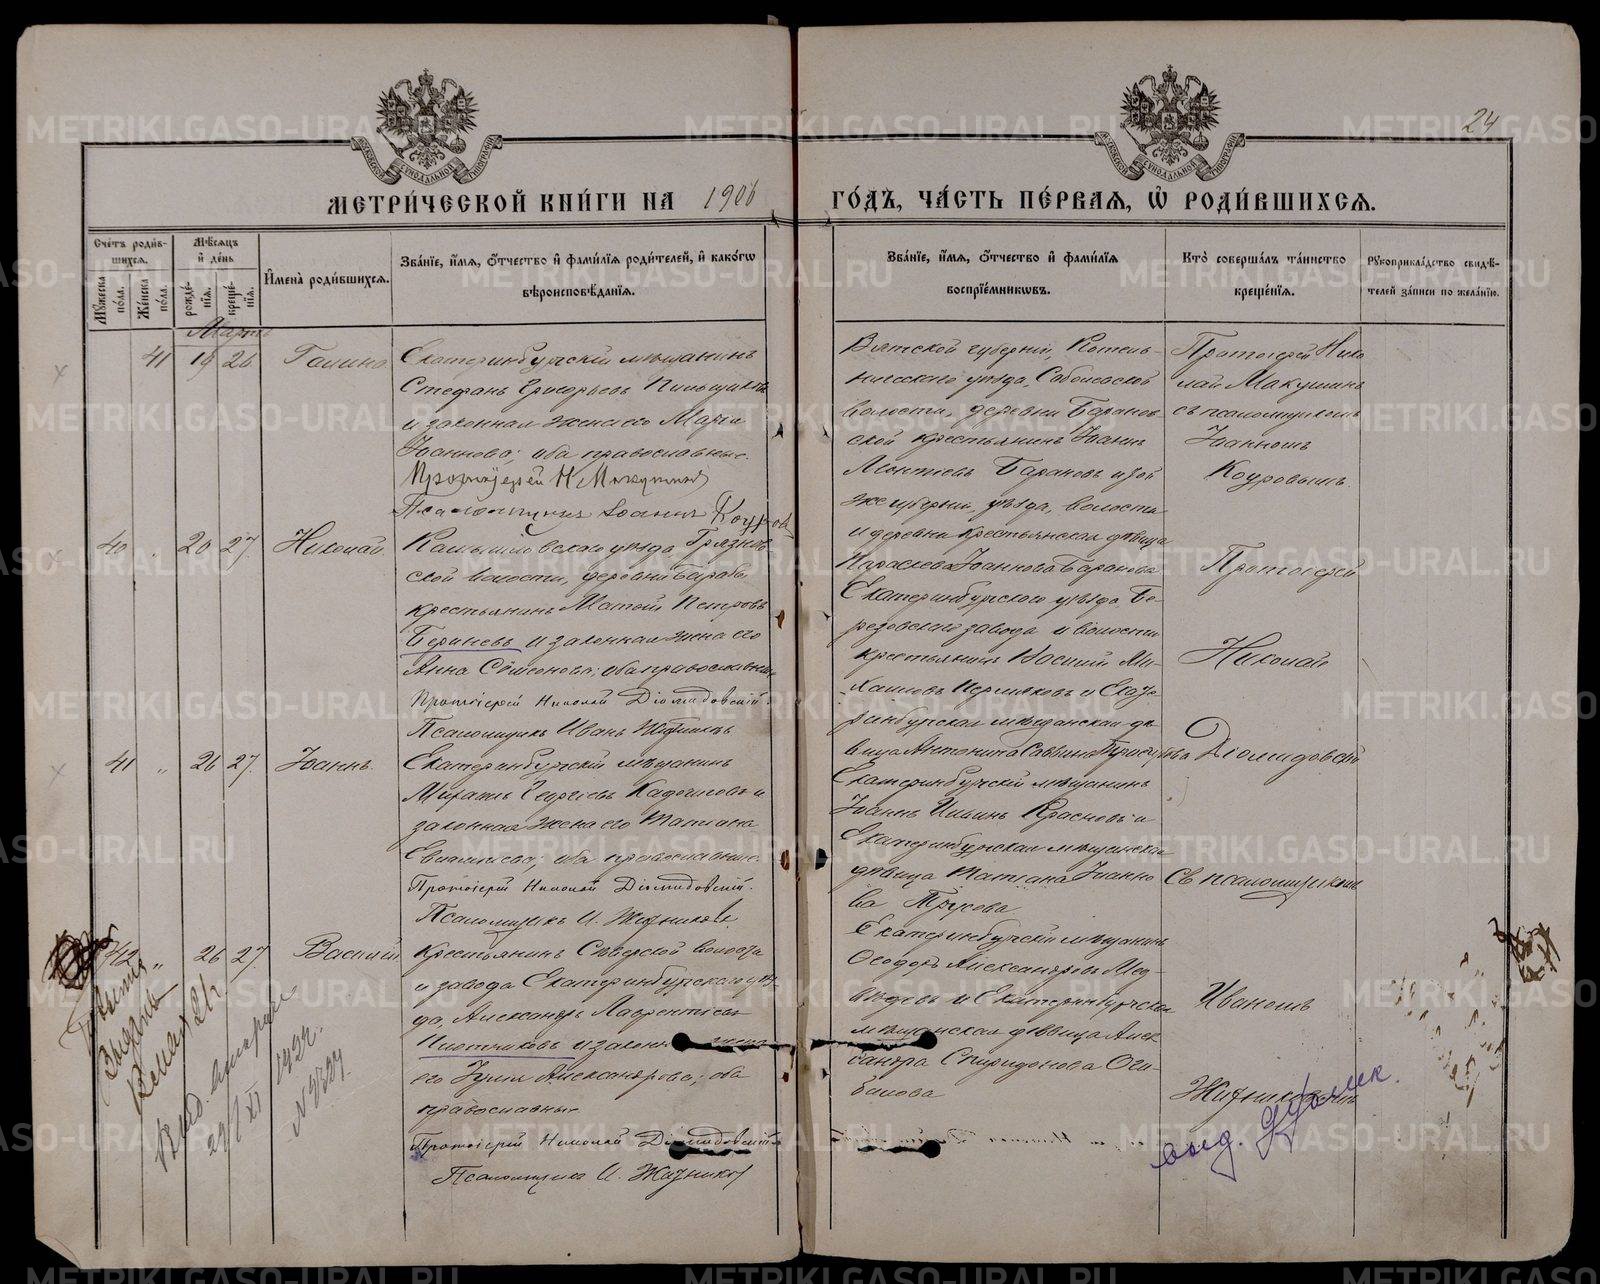 24
МЕТРИ́ЧЕСКОЙ КНИ́ГИ НА 1906 ГО́ДЪ, ЧА́СТЬ ПЕ́РВАЯ, Ѡ РОДИ́ВШИХСЯ.
Сче́тъ роди́вшихся.
Му́жеска по́ла.
Же́нска по́ла.
Мѣ́сяцъ и де́нь
рожде́нїя.
креще́нїя.
И҆мена̀ роди́вшихся.
Зва́нїе, и҆́мя, ѻ҆́тчество и҆ фами́лїя роди́телей, и҆ како́гѡ вѣроисповѣ́данїя.
Зва́нїе, и҆́мя, ѻ҆́тчество и҆ фами́лїя воспрїе́мникѡвъ.
Кто̀ соверша́лъ та́инство креще́нїя.
Рꙋкоприкла́дство свидѣ́телей за́писи по жела́нїю.
Марта
41 19 26 Галина
Екатеринбургскій мѣщанинъ
Стефанъ Григорьевъ Пильщиковъ
и законная жена его Марія
Іоаннова; оба православные.
Протоіерей Н. Макушинъ
Псаломщикъ Іоаннъ Коуровъ
Вятской губерніи, Котель-
ническаго уѣзда,
волости, деревни Баранов
ской крестьянинъ Іоаннъ
Леонтіевъ Барановъ и той
же губерніи, уѣзда, волости
и деревни крестьянская дѣвица
Параскева Іоаннова Баранова
Протоіерей Нико
лай Макушинъ
съ псаломщикомъ
Іоанномъ
Коуровымъ.
40 " 20 27 Николай.
Камышловскаго уѣзда Грязнов
ской волости, деревни
крестьянинъ Матѳій Петровъ
и законная жена его
Анна Симеонова; оба православные
Протоіерей Николай Діомидовскій.
Псаломщикъ Иванъ Житниковъ
Екатеринбургскаго уѣзда Бе-
резовскаго завода и волости
крестьянинъ Василій Ми-
хаиловъ Пермяковъ и Екате-
ринбургская мѣщанская дѣ-
вица Антонина Саввина
Протоіерей
Николай
Діомидовскій
41 " 26 27. Іоаннъ.
Екатеринбургскій мѣщанинъ
Михаилъ Георгіевъ и
законная жена его Татіана
оба православные.
Протоіерей Николай Діомидовскій.
Псаломщикъ И. Житниковъ.
Екатеринбургскій мѣщанинъ
Іоаннъ Ильинъ Красновъ и
Екатеринбургская мѣщанская
дѣвица Татіана Іоанно
ва Трусова
Съ псаломщикомъ
42 " 26 27. Василій
Крестьянинъ Сѣверской волости
и завода Екатеринбургскаго уѣз-
да, Александръ Лаврентіевъ
Плотниковъ и законная жена
его Юлія Александрова; оба
православные
Протоіерей Николай Діомидовскій
Псаломщикъ И. Житниковъ
Екатеринбургскій мѣщанинъ
Ѳеодоръ Александровъ Мед-
вѣдевъ и Екатеринбургская
мѣщанская дѣвица Алек
сандра Спиридонова Оси-
Иваномъ
Житниковымъ
METRIKI.GASO-URAL.RU